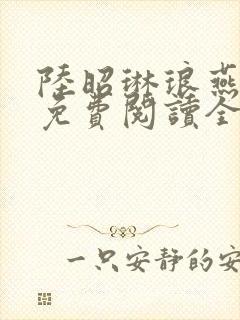 陸昭琳琅燕
免費閱讀全
一只安靜的安